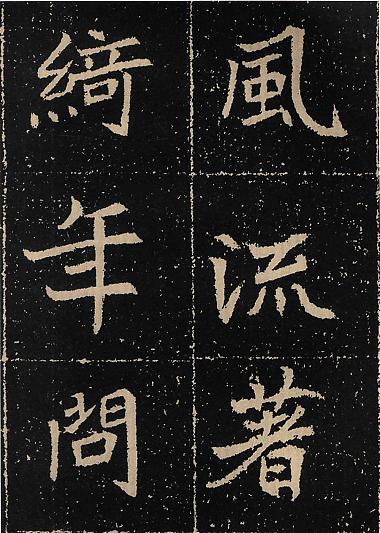 風流著
綺年問